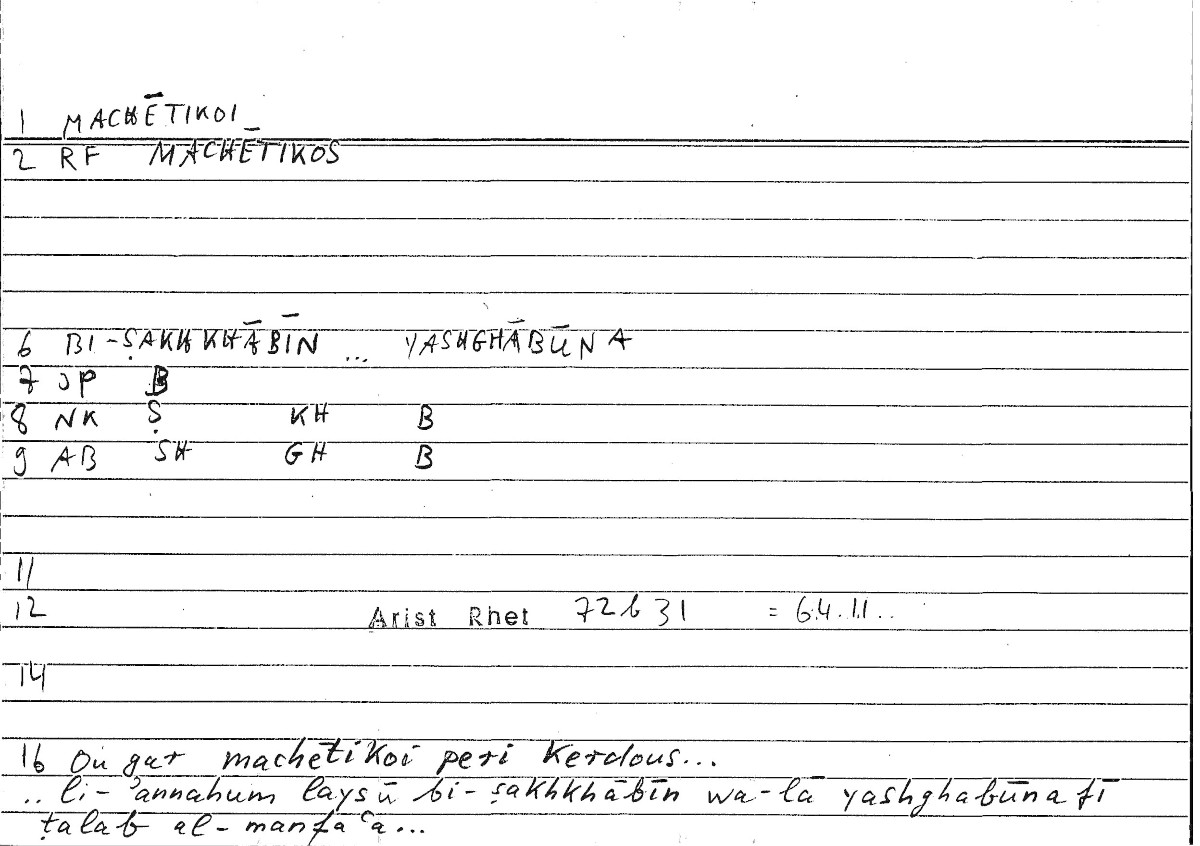 1 MACHĒTIKOI
2 RF MACHĒTIKOS
6 BI-ṢAKHKHĀBĪN ... YASHGHĀBŪNA
7 JP B
8 NK Ṣ KH B
9 AB SH GH B
11
12 Arist Rhet 72b31 = 64.11..
14
16 Ou gar machētikoi peri kerdous...
.. li-ʾannahum laysū bi-ṣakhkhābīn wa-lā yashghabūna fī
ṭalab al-manfaʿa...